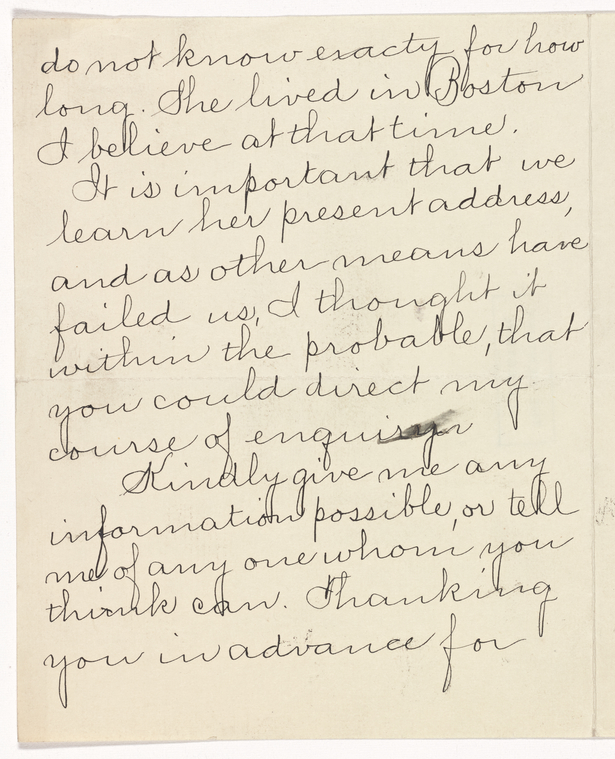 do not know exacty for how
long. She lived in Boston
I believe at that time.
It is important that we
learn her present address,
and as other means have
failed us, I thought it
within the probable, that
you could direct my
course of enquiry
Kindly give me any
information possible, or tell
me of any one whom you
think can. Thanking
you in advance for